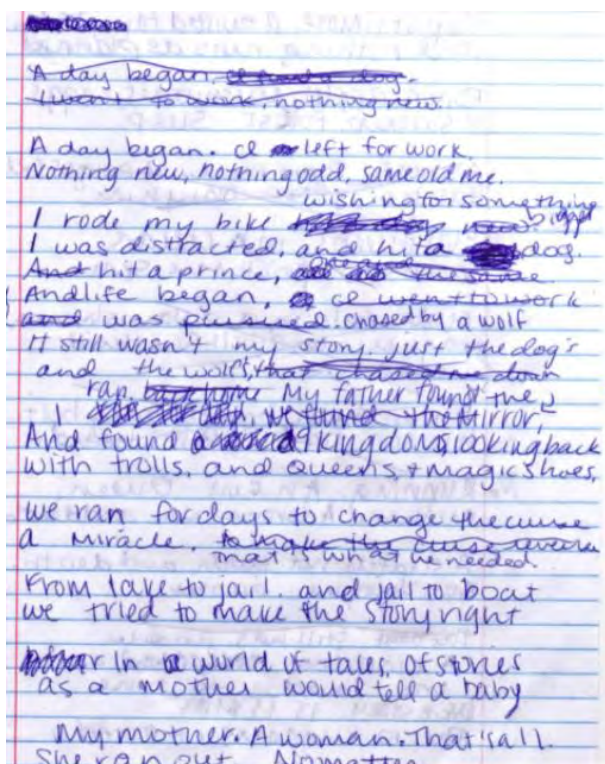 A day began.
I went to work, nothing new.
A day began. I left for work.
Nothing new, nothing odd, same old me.
wishing for something
I rode my bike bigger
I was distracted, and hit a dog.
And hit a prince, the same
And life began, I went to work
and was pursued. chased by a wolf
It still wasn't my story. just the dog's
and the wolf's, that chased me down
ran, back home My father found me,
I we found the Mirror,
And found 9 kingdoms, looking back
with trolls, and Queens, + magic shoes,
we ran for days to change the curse
a miracle, to make the curse reverse
that is what he needed.
From lake to jail. and jail to boat
we tried to make the story right
In a world of tales, of stories
as a mother would tell a baby
My mother. A woman. That's all.
She ran out. No matter